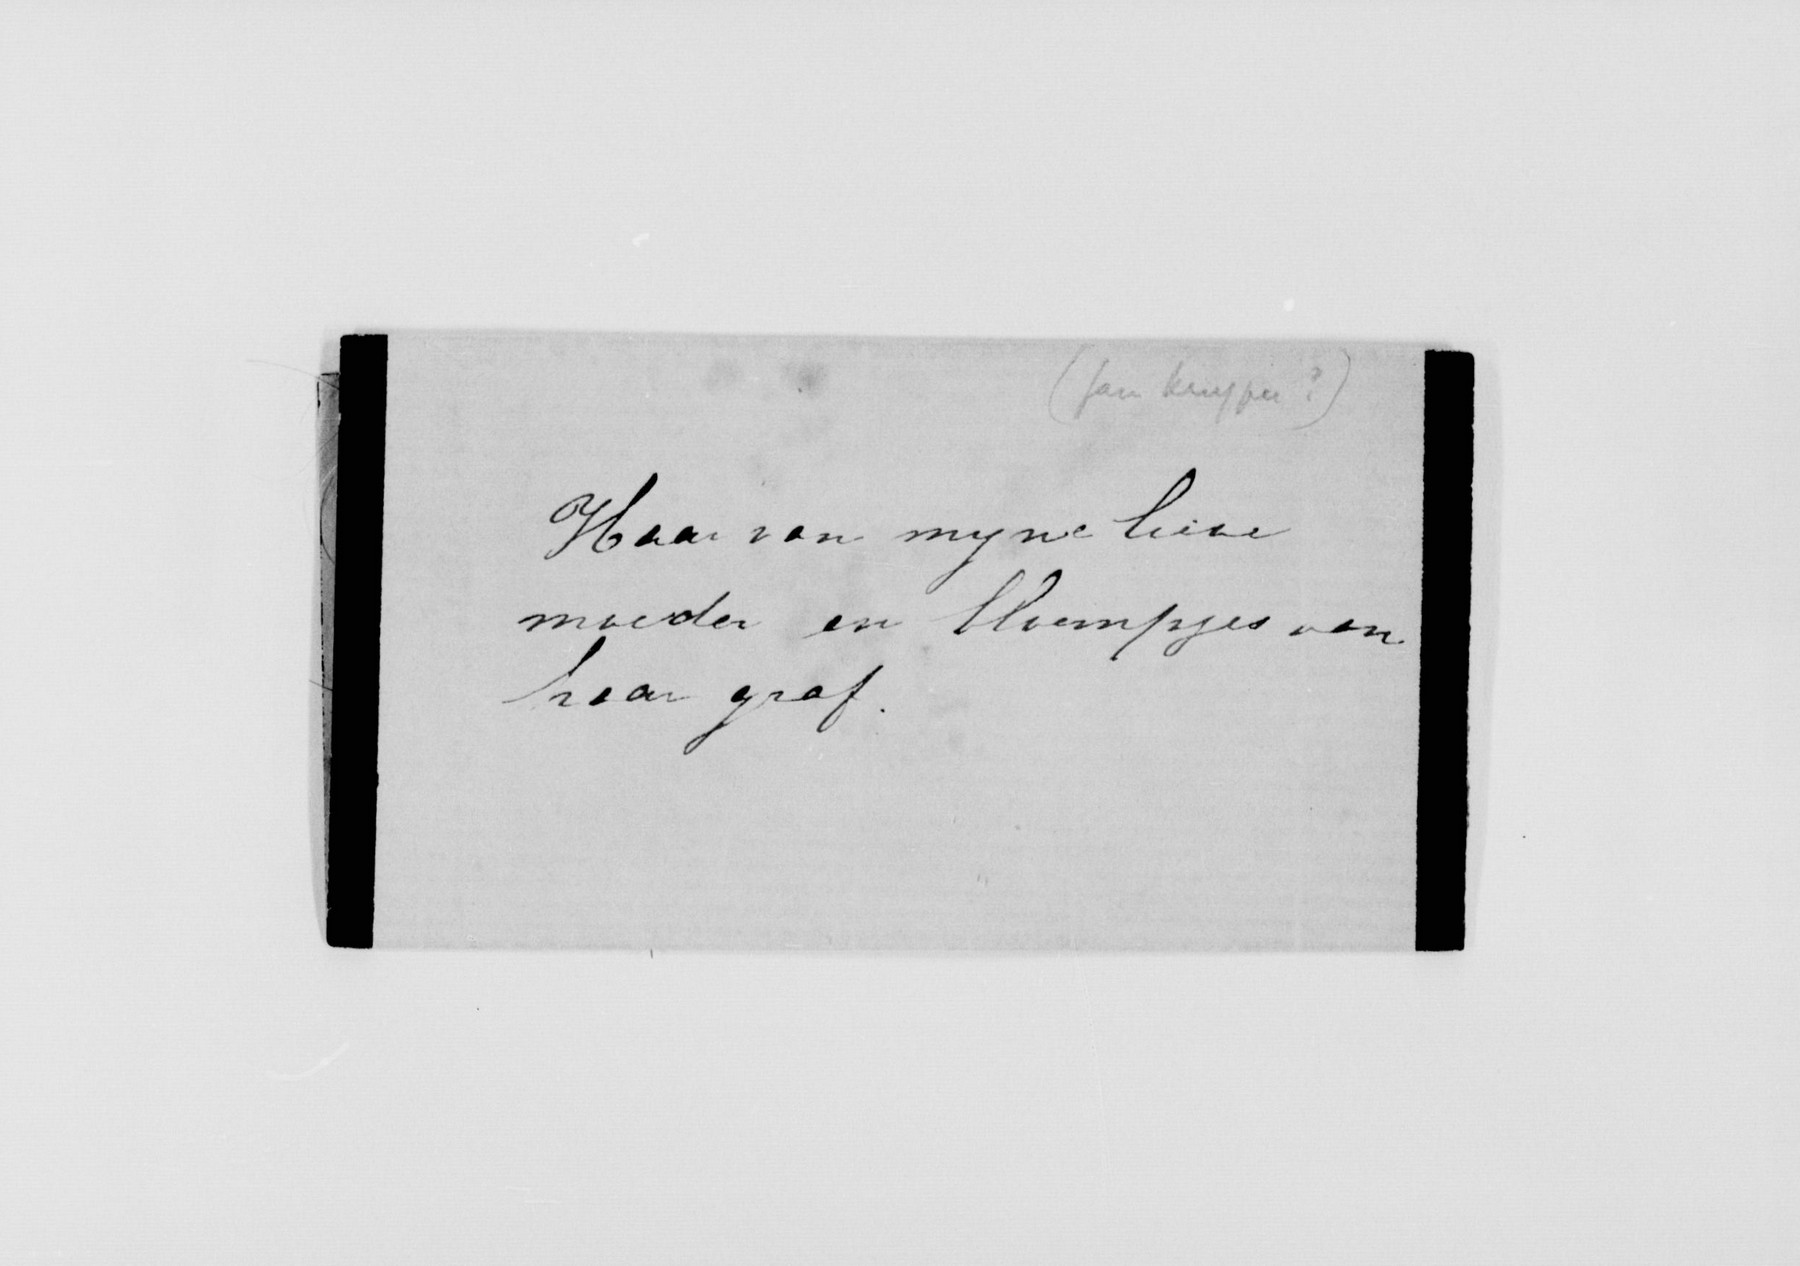 (Jan Kuyper?)
Haar van myne lieve
moeder en bloempjes van
haar graf.